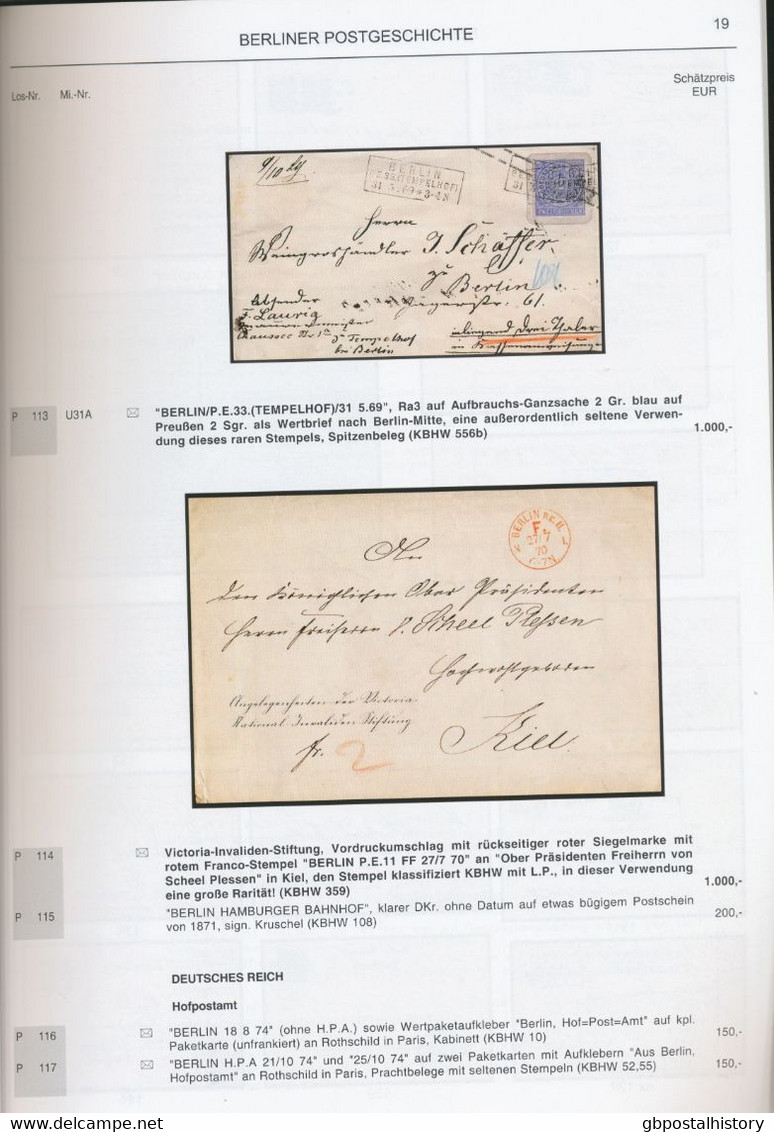 BERLINER POSTGESCHICHTE
19
Los-Nr. Mi.-Nr.
Schätzpreis
EUR
9/10 Lg
BERLIN
P.E.33.(TEMPELHOF)
31 5.69 * 3-4 N
Herrn
Weingroshändler J. Schäffer
zu
Berlin
Jägerstr. 61.
Absender
F. Laurig
Chaussee
Tempelhof
bei Berlin
inliegend drei Thaler
in Kassenanweisung
P 113 U31A "BERLIN/P.E.33.(TEMPELHOF)/31 5.69", Ra3 auf Aufbrauchs-Ganzsache 2 Gr. blau auf
Preußen 2 Sgr. als Wertbrief nach Berlin-Mitte, eine außerordentlich seltene Verwen-
dung dieses raren Stempels, Spitzenbeleg (KBHW 556b) 1.000,-
BERLIN P.E.11.
F
27/7
70
An
den Königlichen Ober Präsidenten
Herrn Freiherrn v. Scheel Plessen
Hochwohlgeboren
Angelegenheiten der Victoria-
National-Invaliden Stiftung
Kiel
fr. 2
P 114 Victoria-Invaliden-Stiftung, Vordruckumschlag mit rückseitiger roter Siegelmarke mit
rotem Franco-Stempel "BERLIN P.E.11 FF 27/7 70" an "Ober Präsidenten Freiherrn von
Scheel Plessen" in Kiel, den Stempel klassifiziert KBHW mit L.P., in dieser Verwendung
eine große Rarität! (KBHW 359) 1.000,-
P 115 "BERLIN HAMBURGER BAHNHOF", klarer DKr. ohne Datum auf etwas bügigem Postschein
von 1871, sign. Kruschel (KBHW 108) 200,-
DEUTSCHES REICH
Hofpostamt
P 116 "BERLIN 18 8 74" (ohne H.P.A.) sowie Wertpaketaufkleber "Berlin, Hof=Post=Amt" auf kpl.
Paketkarte (unfrankiert) an Rothschild in Paris, Kabinett (KBHW 10) 150,-
P 117 "BERLIN H.P.A 21/10 74" und "25/10 74" auf zwei Paketkarten mit Aufklebern "Aus Berlin,
Hofpostamt" an Rothschild in Paris, Prachtbelege mit seltenen Stempeln (KBHW 52,55) 150,-
gbpostalhistory